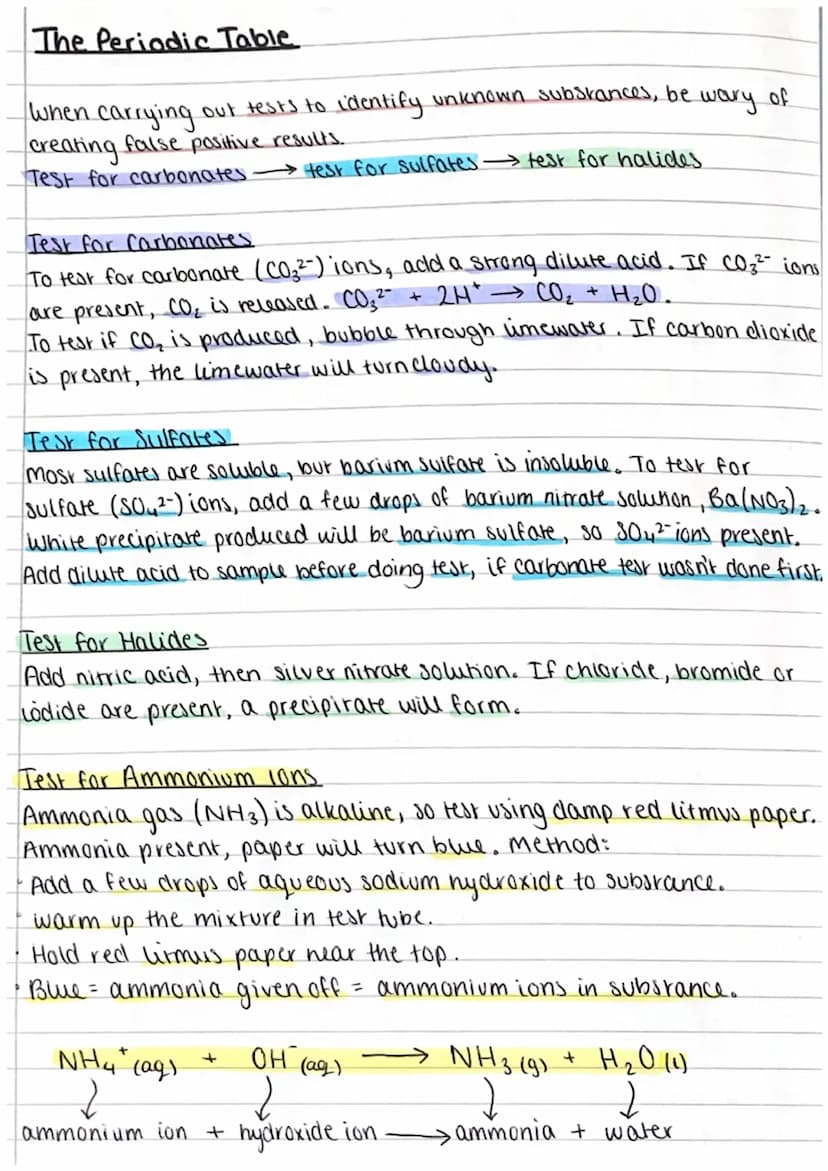 The Periodic Table
When carrying out tests to identify unknown substances, be wary of
creating false positive results.
Test for carbonates → test for sulfates → test for halides
Test for Carbonates
To test for carbonate (CO₃²⁻) ions, add a strong dilute acid. If CO₃²⁻ ions
are present, CO₂ is released. CO₃²⁻ + 2H⁺ → CO₂ + H₂O.
To test if CO₂ is produced, bubble through limewater. If carbon dioxide
is present, the limewater will turn cloudy.
Test for Sulfates
Most sulfates are soluble, but barium sulfate is insoluble. To test for
sulfate (SO₄²⁻) ions, add a few drops of barium nitrate solution, Ba(NO₃)₂.
White precipitate produced will be barium sulfate, so SO₄²⁻ ions present.
Add dilute acid to sample before doing test, if carbonate test wasn't done first.
Test for Halides
Add nitric acid, then silver nitrate solution. If chloride, bromide or
iodide are present, a precipitate will form.
Test for Ammonium ions
Ammonia gas (NH₃) is alkaline, so test using damp red litmus paper.
Ammonia present, paper will turn blue. Method:
· Add a few drops of aqueous sodium hydroxide to substance.
· warm up the mixture in test tube.
· Hold red litmus paper near the top.
· Blue = ammonia given off = ammonium ions in substance.
NH₄⁺(aq) + OH⁻(aq) → NH₃(g) + H₂O(l)
ammonium ion + hydroxide ion → ammonia + water